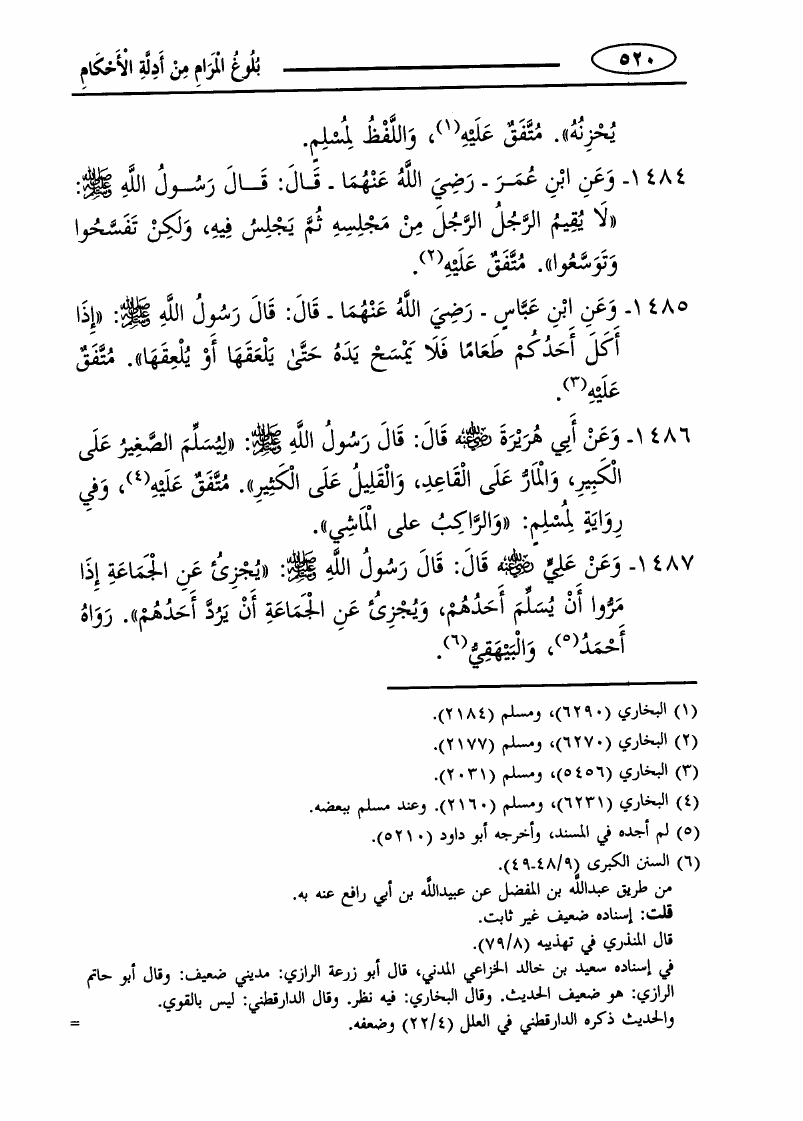 ٥٢٠ بُلُوغُ الْمَرَامِ مِنْ أَدِلَّةِ الْأَحْكَامِ
يُحْزِنُهُ». مُتَّفَقٌ عَلَيْهِ(١)، وَاللَّفْظُ لِمُسْلِمٍ.
١٤٨٤- وَعَنِ ابْنِ عُمَـرَ - رَضِيَ اللَّهُ عَنْهُمَا - قَـالَ: قَـالَ رَسُـولُ اللَّهِ ﷺ:
«لَا يُقِيمُ الرَّجُلُ الرَّجُلَ مِنْ مَجْلِسِهِ ثُمَّ يَجْلِسُ فِيهِ، وَلَكِنْ تَفَسَّحُوا
وَتَوَسَّعُوا». مُتَّفَقٌ عَلَيْهِ(٢).
١٤٨٥- وَعَنِ ابْنِ عَبَّاسٍ - رَضِيَ اللَّهُ عَنْهُمَا - قَالَ: قَالَ رَسُولُ اللَّهِ ﷺ: «إِذَا
أَكَلَ أَحَدُكُمْ طَعَامًا فَلَا يَمْسَحْ يَدَهُ حَتَّىٰ يَلْعَقَهَا أَوْ يُلْعِقَهَا». مُتَّفَقٌ
عَلَيْهِ(٣).
١٤٨٦- وَعَنْ أَبِي هُرَيْرَةَ رضي الله عنه قَالَ: قَالَ رَسُولُ اللَّهِ ﷺ: «لِيُسَلِّمَ الصَّغِيرُ عَلَى
الْكَبِيرِ، وَالْمَارُّ عَلَى الْقَاعِدِ، وَالْقَلِيلُ عَلَى الْكَثِيرِ». مُتَّفَقٌ عَلَيْهِ(٤)، وَفِي
رِوَايَةٍ لِمُسْلِمٍ: «وَالرَّاكِبُ على الْمَاشِي».
١٤٨٧- وَعَنْ عَلِيٍّ رضي الله عنه قَالَ: قَالَ رَسُولُ اللَّهِ ﷺ: «يُجْزِئُ عَنِ الْجَمَاعَةِ إِذَا
مَرُّوا أَنْ يُسَلِّمَ أَحَدُهُمْ، وَيُجْزِئُ عَنِ الْجَمَاعَةِ أَنْ يَرُدَّ أَحَدُهُمْ». رَوَاهُ
أَحْمَدُ(٥)، وَالْبَيْهَقِيُّ(٦).
(١) البخاري (٦٢٩٠)، ومسلم (٢١٨٤).
(٢) البخاري (٦٢٧٠)، ومسلم (٢١٧٧).
(٣) البخاري (٥٤٥٦)، ومسلم (٢٠٣١).
(٤) البخاري (٦٢٣١)، ومسلم (٢١٦٠). وعند مسلم ببعضه.
(٥) لم أجده في المسند، وأخرجه أبو داود (٥٢١٠).
(٦) السنن الكبرى (٤٨/٩-٤٩).
من طريق عبدالله بن المفضل عن عبيدالله بن أبي رافع عنه به.
قلت: إسناده ضعيف غير ثابت.
قال المنذري في تهذيبه (٧٩/٨).
في إسناده سعيد بن خالد الخزاعي المدني، قال أبو زرعة الرازي: مديني ضعيف: وقال أبو حاتم
الرازي: هو ضعيف الحديث. وقال البخاري: فيه نظر. وقال الدارقطني: ليس بالقوي.
والحديث ذكره الدارقطني في العلل (٢٢/٤) وضعفه. =